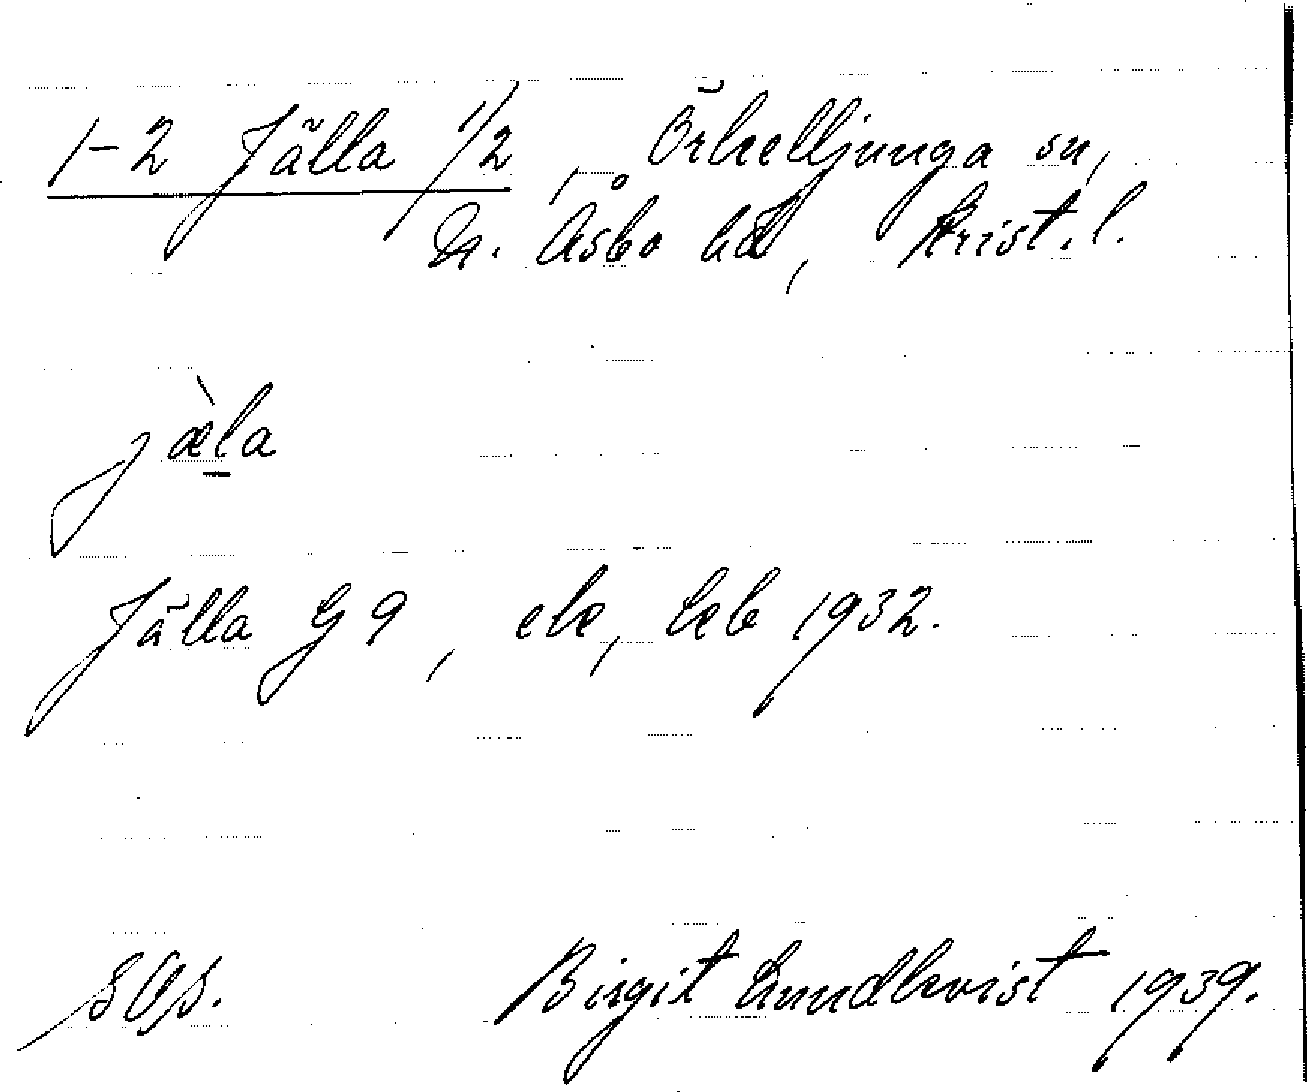 1-2 Jälla 1/2, Örkelljunga sn,
N. Åsbo hd, Krist. l.
jæ̀la
Jälla G 9, ek, Jeb 1932.
Birgit Lundkvist 1939.